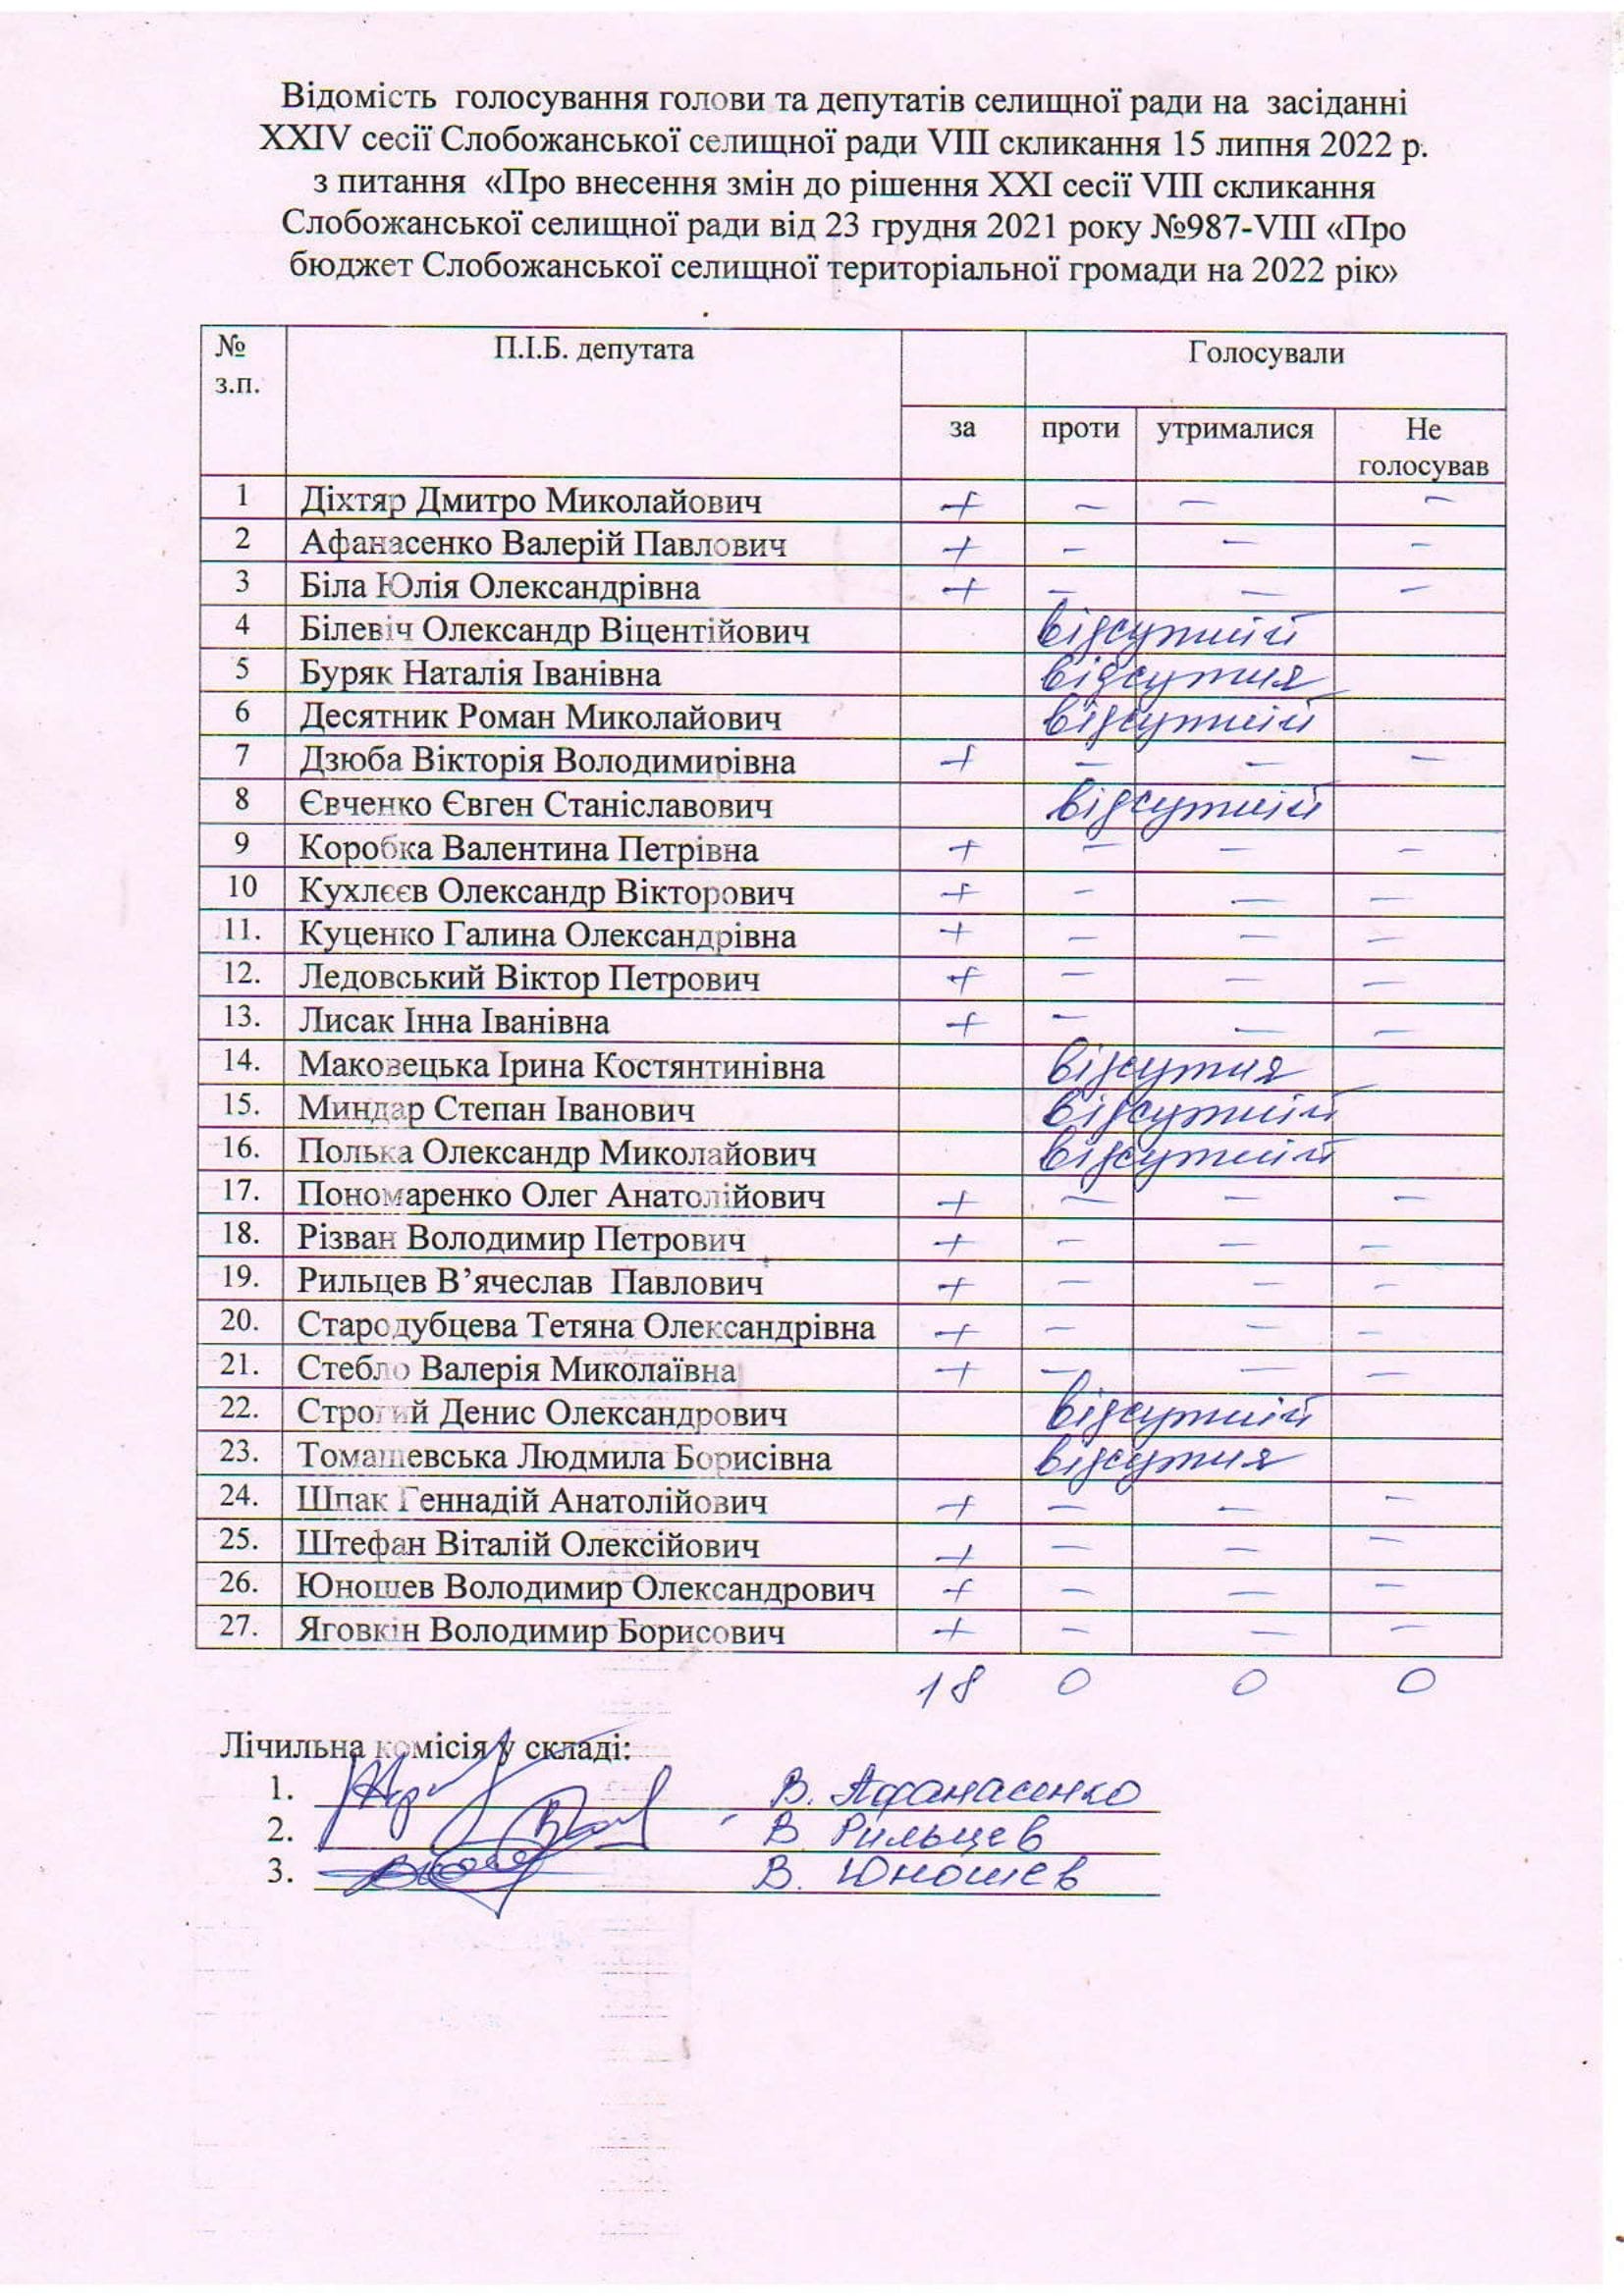 Відомість голосування голови та депутатів селищної ради на засіданні
XXIV сесії Слобожанської селищної ради VIII скликання 15 липня 2022 р.
з питання «Про внесення змін до рішення XXI сесії VIII скликання
Слобожанської селищної ради від 23 грудня 2021 року №987-VIII «Про
бюджет Слобожанської селищної територіальної громади на 2022 рік»
№ з.п. П.І.Б. депутата Голосували
за проти утрималися Не голосував
1 Діхтяр Дмитро Миколайович + – – –
2 Афанасенко Валерій Павлович + – – –
3 Біла Юлія Олександрівна + – – –
4 Білевіч Олександр Віцентійович відсутній
5 Буряк Наталія Іванівна відсутня
6 Десятник Роман Миколайович відсутній
7 Дзюба Вікторія Володимирівна + – – –
8 Євченко Євген Станіславович відсутній
9 Коробка Валентина Петрівна + – – –
10 Кухлєєв Олександр Вікторович + – – –
11. Куценко Галина Олександрівна + – – –
12. Ледовський Віктор Петрович + – – –
13. Лисак Інна Іванівна + – – –
14. Маковецька Ірина Костянтинівна відсутня
15. Миндар Степан Іванович відсутній
16. Полька Олександр Миколайович відсутній
17. Пономаренко Олег Анатолійович + – – –
18. Різван Володимир Петрович + – – –
19. Рильцев В’ячеслав Павлович + – – –
20. Стародубцева Тетяна Олександрівна + – – –
21. Стебло Валерія Миколаївна + – – –
22. Строгий Денис Олександрович відсутній
23. Томашевська Людмила Борисівна відсутня
24. Шпак Геннадій Анатолійович + – – –
25. Штефан Віталій Олексійович + – – –
26. Юношев Володимир Олександрович + – – –
27. Яговкін Володимир Борисович + – – –
18 0 0 0
Лічильна комісія у складі:
1. В. Афанасенко
2. В Рильцев
3. В. Юношев